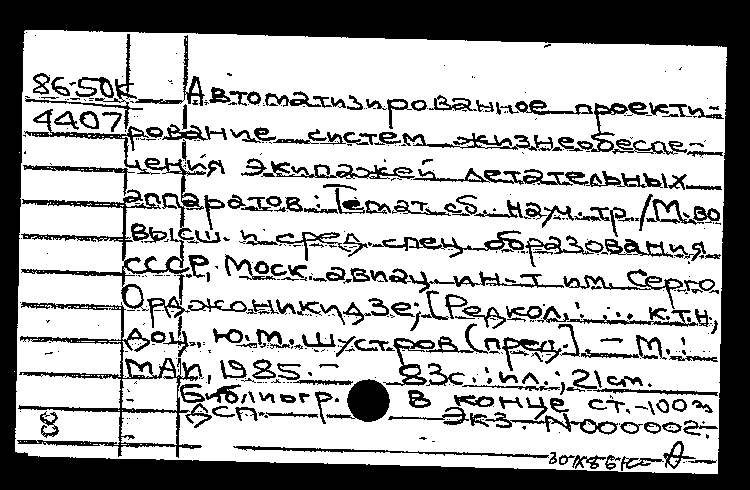 86-50К Автоматизированное проекти-
4407 рование систем жизнеобеспе-
чения экипажей летательных
аппаратов: Темат. сб. науч. тр. /М-во
высш. и сред. спец. образования
СССР, Моск. авиац. ин-т им. Серго
Орджоникидзе; [Редкол.: ... к.т.н,
доц. Ю.М. Шустров (пред.]. – М.:
МАИ, 1985. – 83с.: ил.; 21 см.
Библиогр. в конце ст. – 100 э
8 ДСП. Экз. N 000002.